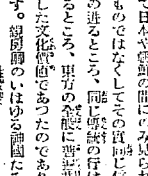 て日本や朝鮮の間にのみ見られ
ものではなくしてその質同じ信
の進るところ、同じ傳統の行は
るところ、東方の全般に普遍
した文化價値であつたのであ
す。親房卿のいはゆる神國た